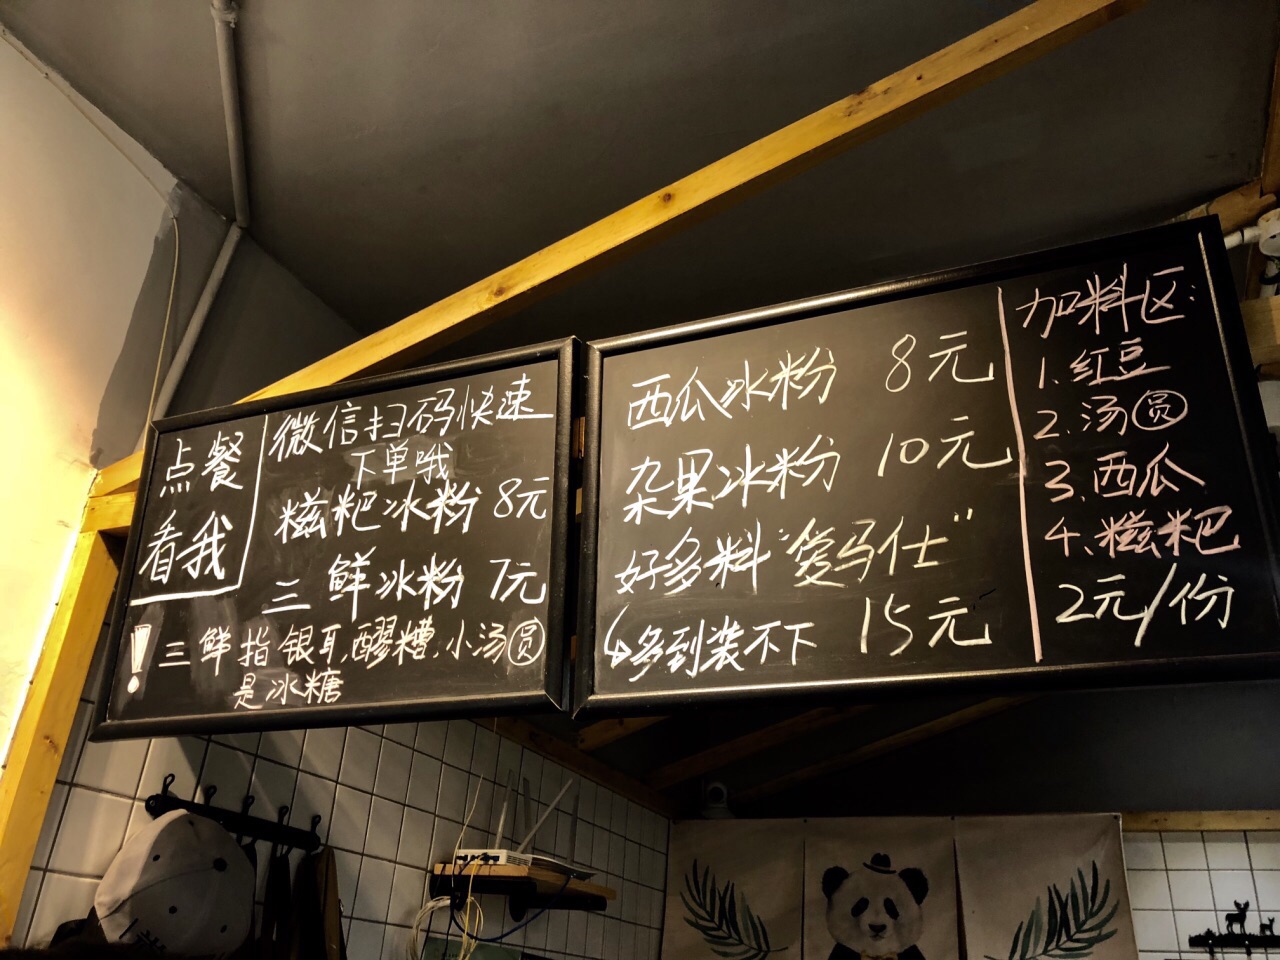 点餐
看我
微信扫码快速
下单哦
糍粑冰粉 8元
三鲜冰粉 7元
! 三鲜指银耳,醪糟,小汤圆
是冰糖
西瓜冰粉 8元
杂果冰粉 10元
好多料“复马仕”
↳多到装不下 15元
加料区:
1.红豆
2.汤圆
3.西瓜
4.糍粑
2元/份